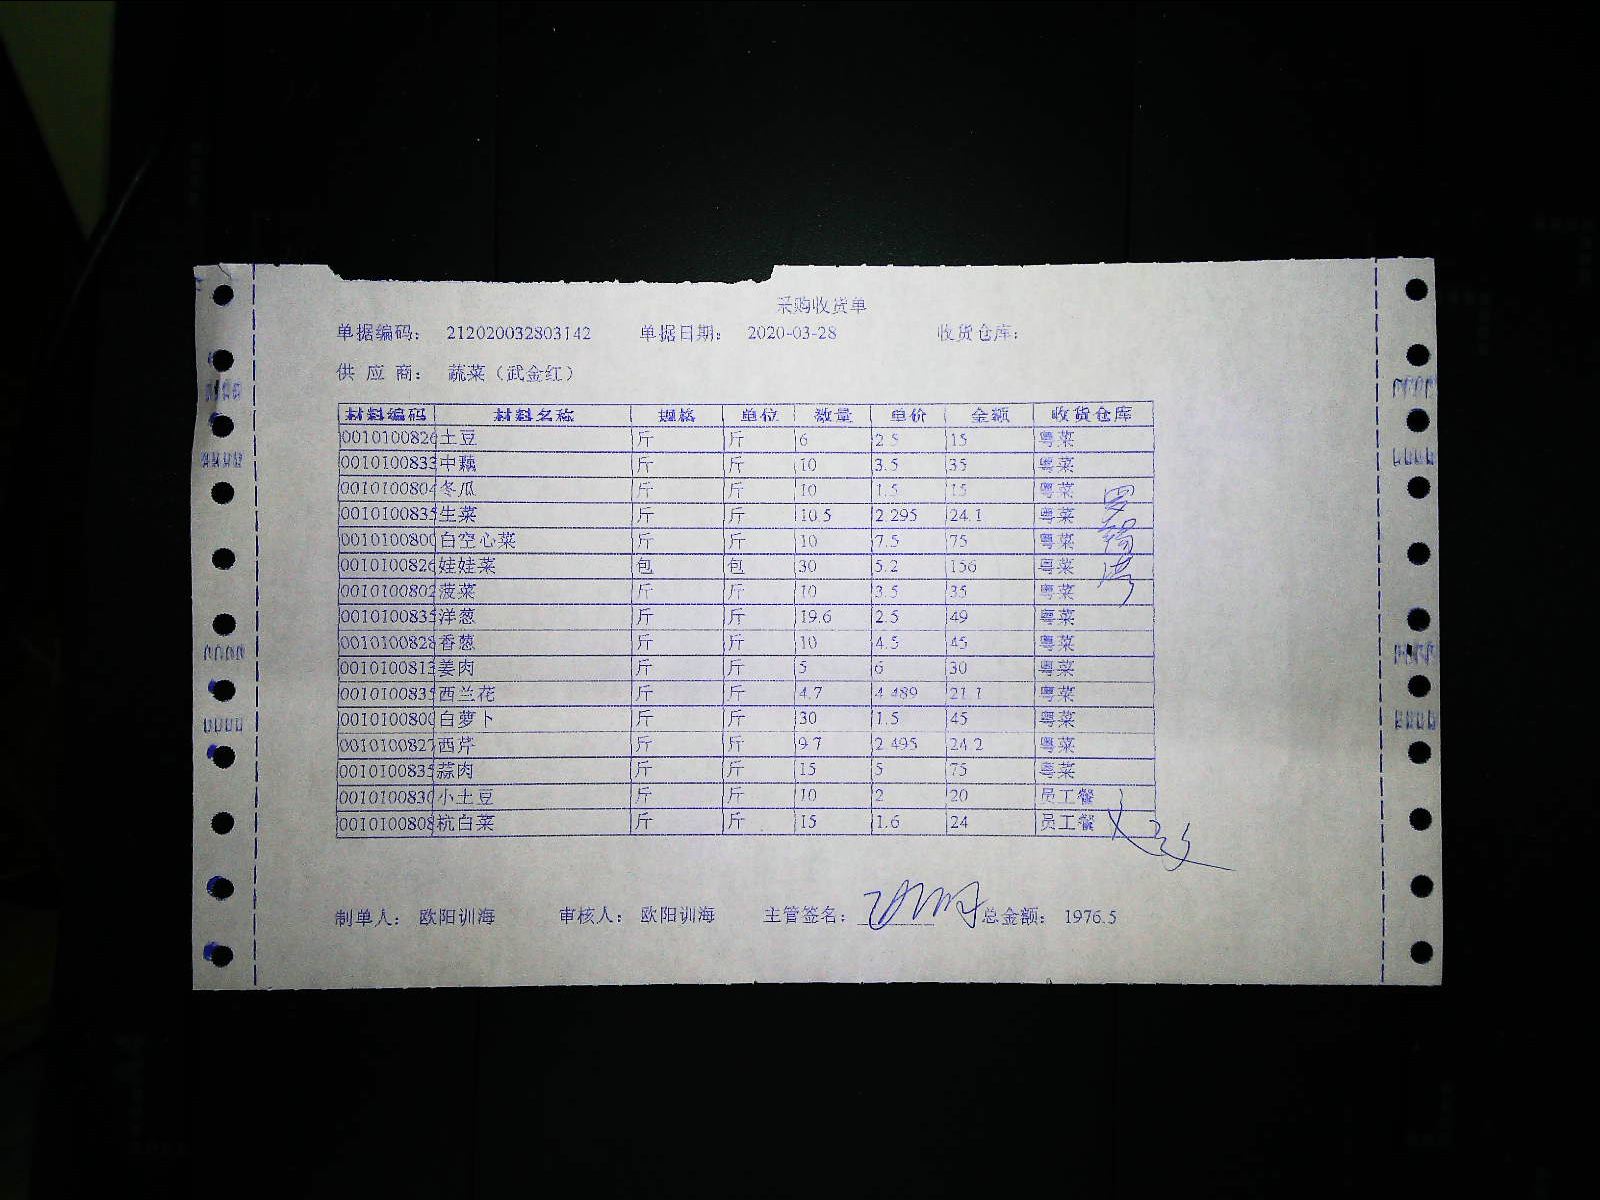 采购收货单
单据编码： 212020032803142 单据日期： 2020-03-28 收货仓库：
供 应 商： 蔬菜（武金红）
材料编码 材料名称 规格 单位 数量 单价 金额 收货仓库
0010100826 土豆 斤 斤 6 2.5 15 粤菜
0010100833 中藕 斤 斤 10 3.5 35 粤菜
0010100804 冬瓜 斤 斤 10 1.5 15 粤菜
0010100835 生菜 斤 斤 10.5 2.295 24.1 粤菜
0010100800 白空心菜 斤 斤 10 7.5 75 粤菜
0010100826 娃娃菜 包 包 30 5.2 156 粤菜
0010100802 菠菜 斤 斤 10 3.5 35 粤菜
0010100835 洋葱 斤 斤 19.6 2.5 49 粤菜
0010100828 香葱 斤 斤 10 4.5 45 粤菜
0010100813 姜肉 斤 斤 5 6 30 粤菜
0010100835 西兰花 斤 斤 4.7 4.489 21.1 粤菜
0010100800 白萝卜 斤 斤 30 1.5 45 粤菜
0010100827 西芹 斤 斤 9.7 2.495 24.2 粤菜
0010100835 蒜肉 斤 斤 15 5 75 粤菜
0010100830 小土豆 斤 斤 10 2 20 员工餐
0010100808 杭白菜 斤 斤 15 1.6 24 员工餐
制单人： 欧阳训海 审核人： 欧阳训海 主管签名： 总金额： 1976.5